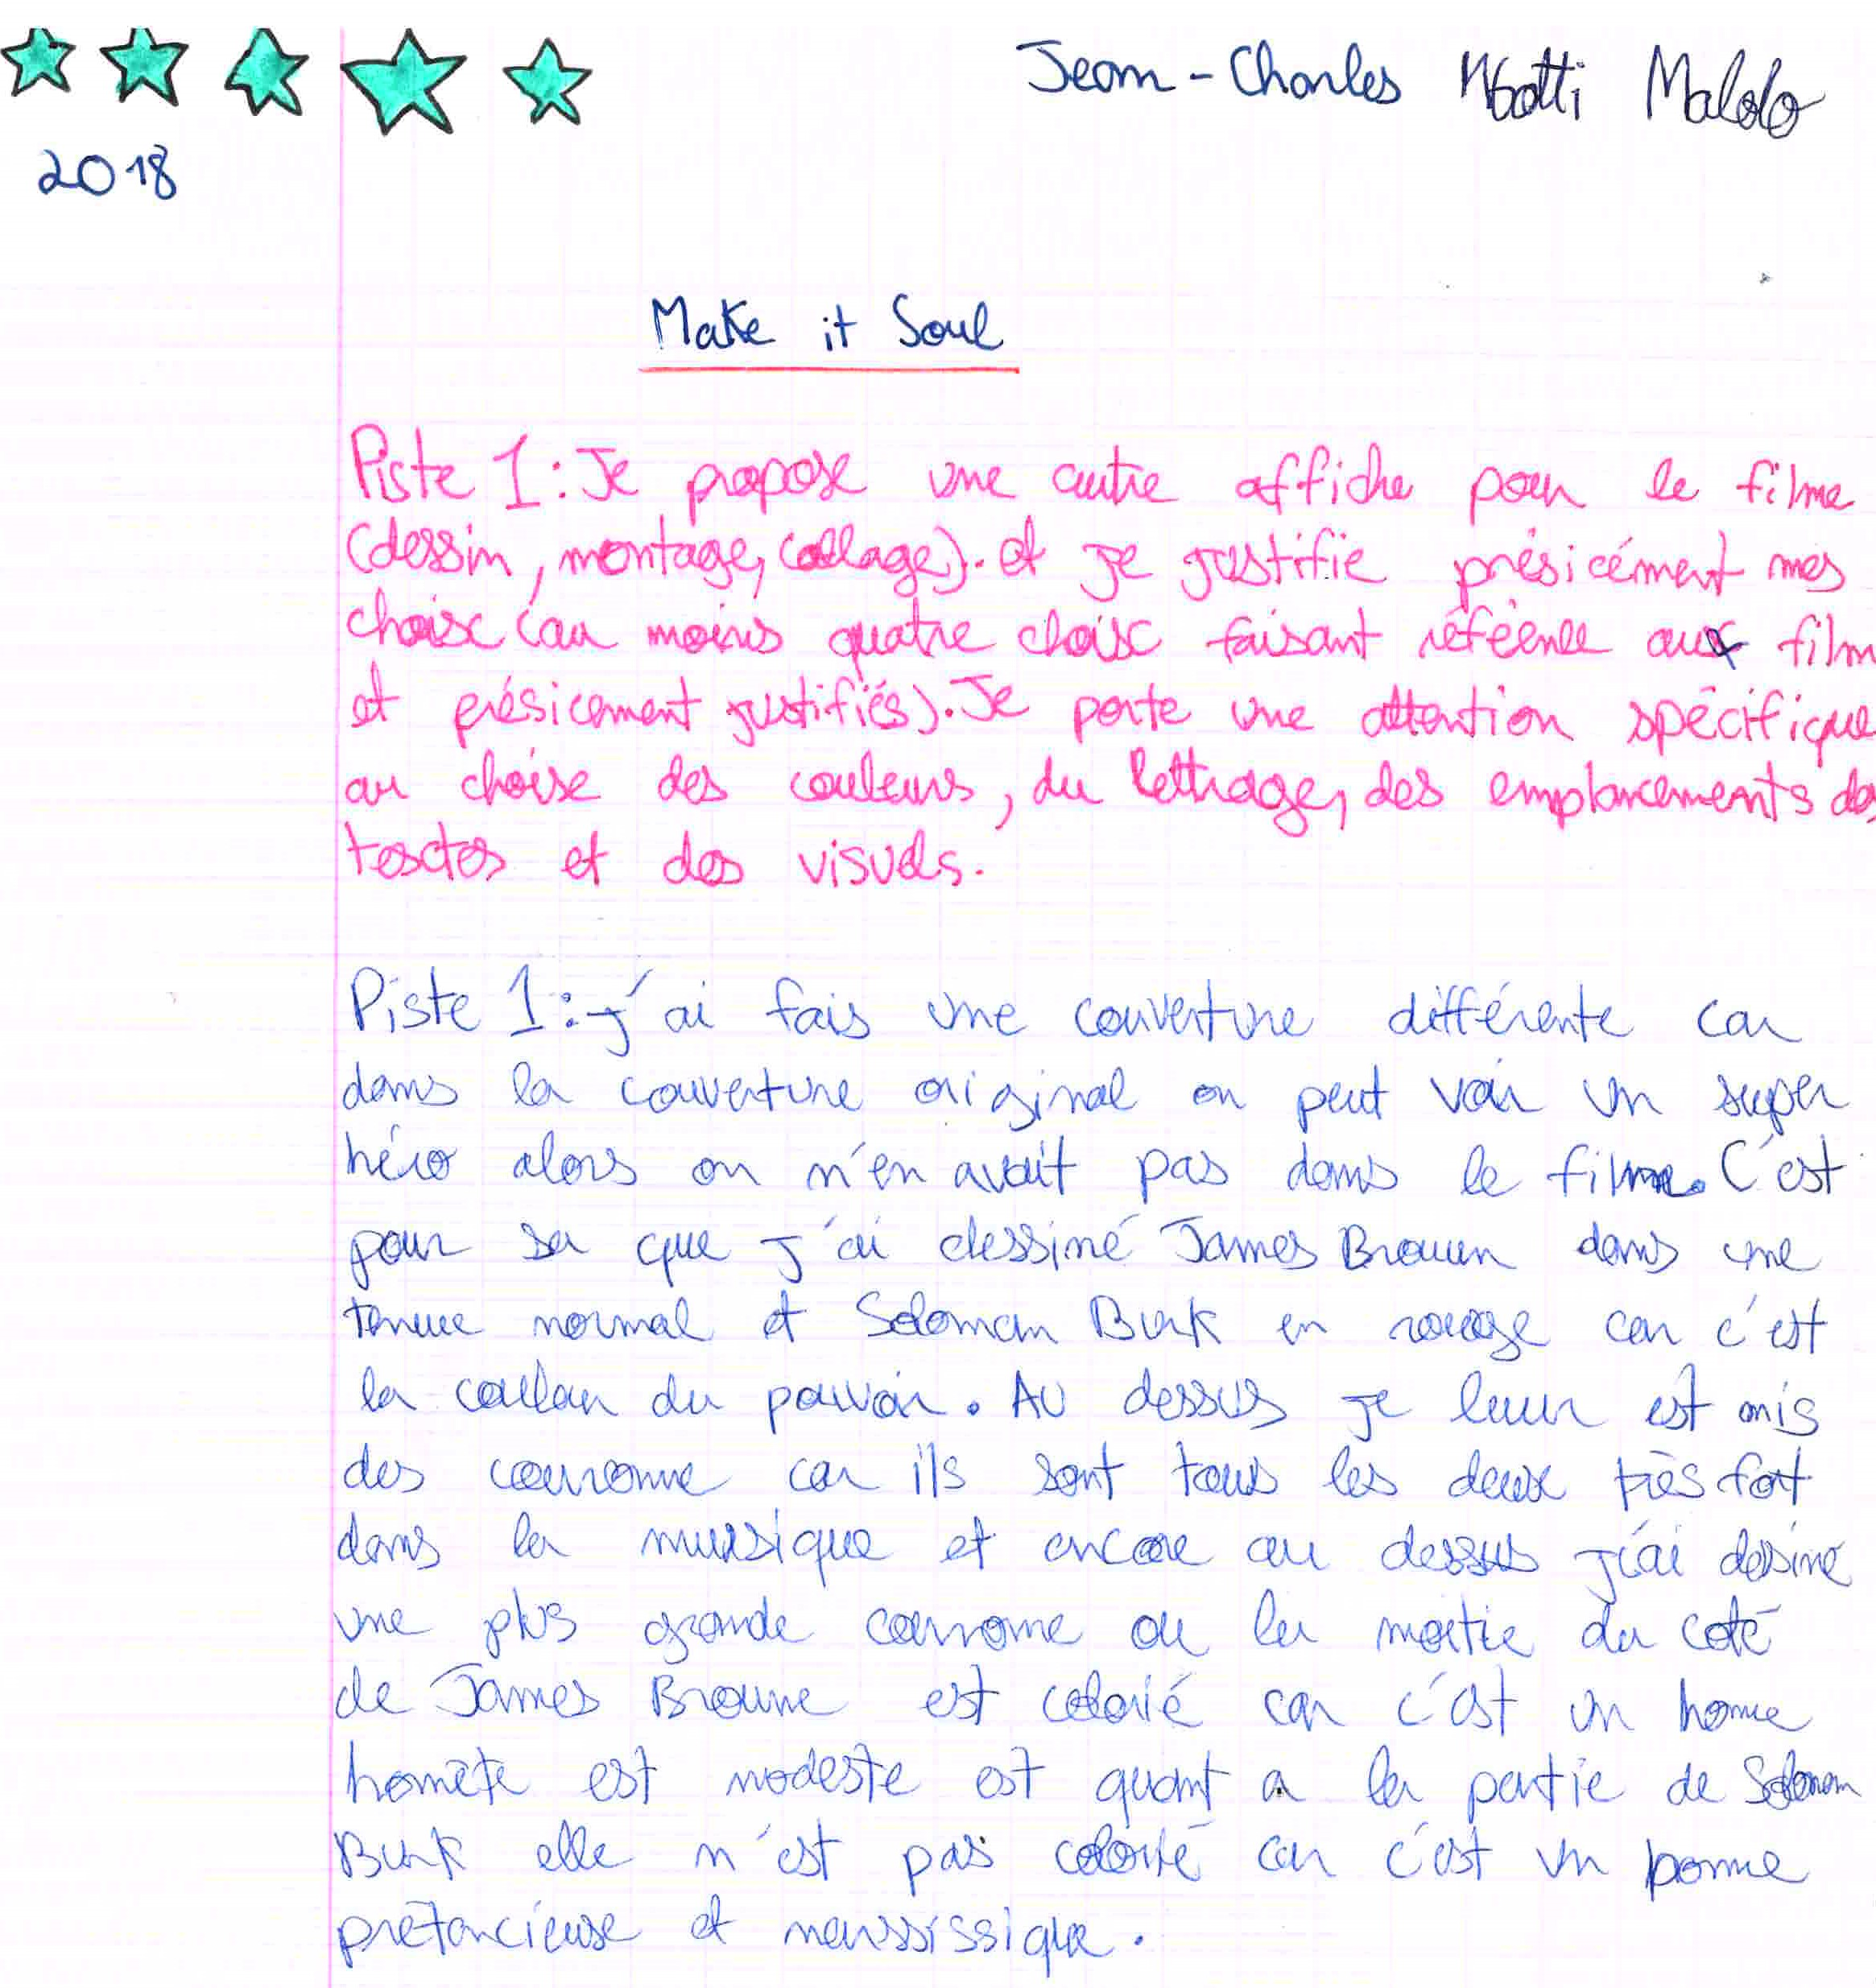 Jean-Charles Mbotti Malolo
2018
Make it Soul
Piste 1 : Je propose une autre affiche pour le filme
(dessin, montage, collage). et je justifie présicément mes
choix (au moins quatre choix faisant référence aux film
et présicement justifiés). Je porte une attention spécifique
au choise des couleurs, du lettrage, des emplancements des
textes et des visuels.
Piste 1 : j'ai fais une couverture différente car
dans la couverture original on peut voir un super
héro alors on n'en avait pas dans le filme. C'est
pour sa que j'ai dessiné James Brouun dans une
tenue normal et Soloman Burk en rouge car c'est
la couleur du pouvoir. Au dessus je leur est mis
des couronne car ils sont tous les deux très fort
dans la mussique et encore au dessus j'ai dessiné
une plus grande couronne ou la moitie du coté
de James Broune est colorié car c'est un home
honnête est modeste est quant a la partie de Soloman
Burk elle n'est pas colorié car c'est un homme
prétencieuse et narssissique.